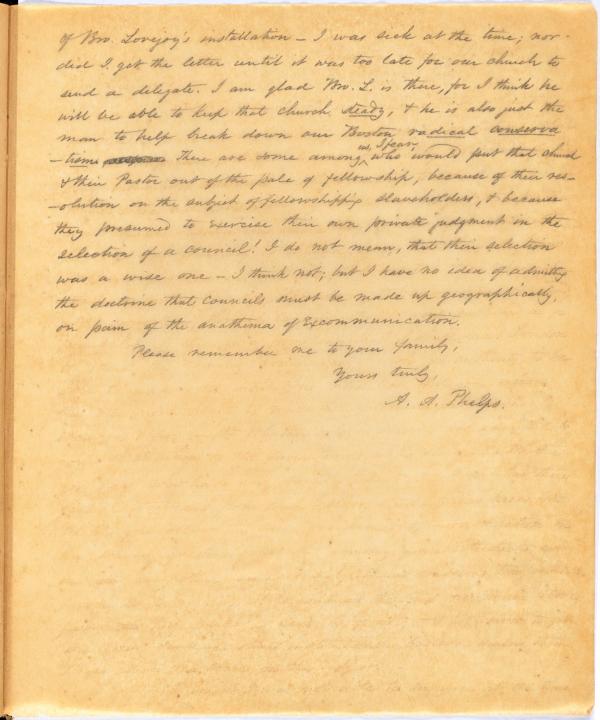 of Bro. Lovejoy's installation – I was sick at the time; nor
did I get the letter until it was too late for our church to
send a delegate. I am glad Bro. L. is there, for I think he
will be able to keep that church steady, & he is also just the
man to help break down our Boston radical conserva
-tism. There are some among us, I fear, who would put that church
& their Pastor out of the pale of fellowship, because of their res-
-olution on the subject of fellowshipping slaveholders, & because
they presumed to exercise their own private judgment in the
selection of a council! I do not mean, that their selection
was a wise one – I think not; but I have no idea of admitting
the doctrine that Councils must be made up geographically,
on pain of the anathema of Excommunication.
Please remember me to your family,
Yours truly,
A. A. Phelps.